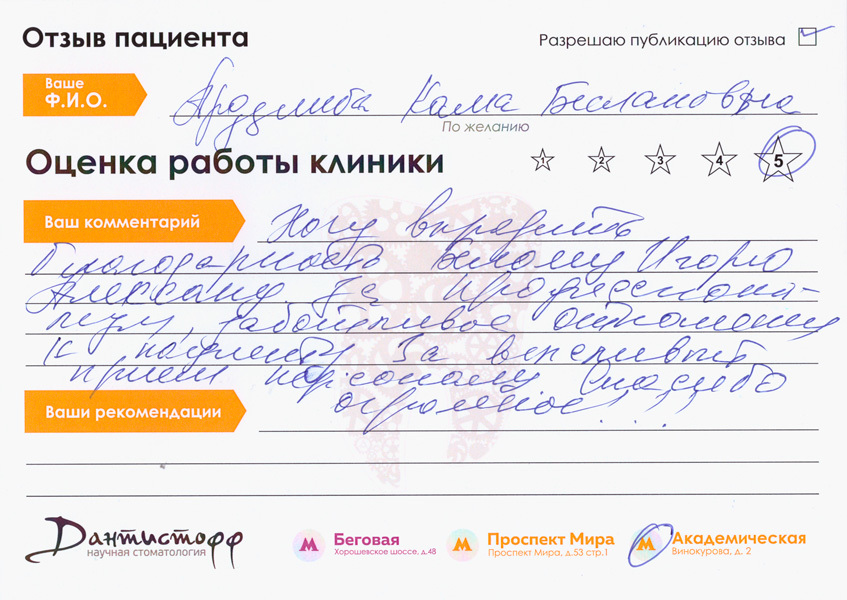 Отзыв пациента
Разрешаю публикацию отзыва
Ваше
Ф.И.О.
Кама Беслановна
По желанию
Оценка работы клиники
1 2 3 4 5
Ваш комментарий
Хочу выразить
благодарность Белому Игорю
Александ. за профессиона-
лизм, заботливое отношение
к пациенту За вежливый
прием персоналу Спасибо
огромное!!!
Ваши рекомендации
Дантистофф
научная стоматология
М Беговая
Хорошевское шоссе, д.48
М Проспект Мира
Проспект Мира, д.53 стр.1
М Академическая
Винокурова, д. 2